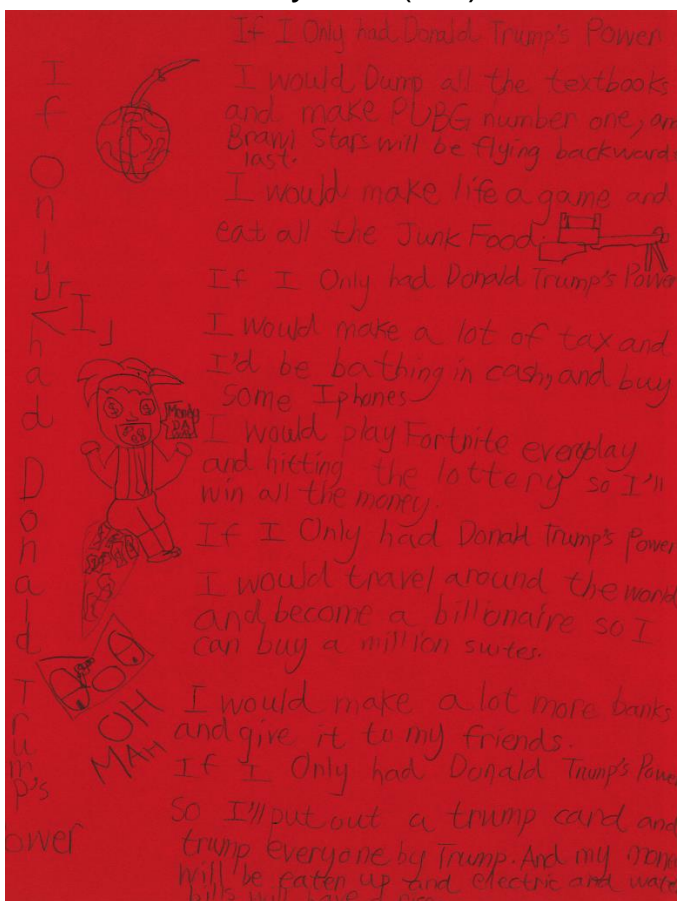 If I Only had Donald Trump's Power
I would Dump all the textbooks
and make PUBG number one, an
Brawl Stars will be flying backward
last.
I would make life a game and
eat all the Junk Food.
If I Only had Donald Trump's Power
I would make a lot of tax and
I'd be bathing in cash, and buy
some Iphones
I would play Fortnite everyday
and hitting the lottery so I'll
win all the money.
If I Only had Donald Trump's Power
I would travel around the world
and become a billionaire so I
can buy a million suites.
I would make a lot more banks
and give it to my friends.
If I Only had Donald Trump's Powe
So I'll put out a trump card and
trump everyone by Trump. And my mone
will be eaten up and electric and wate
If Only I had Donald Trump's ower
OH
MAH